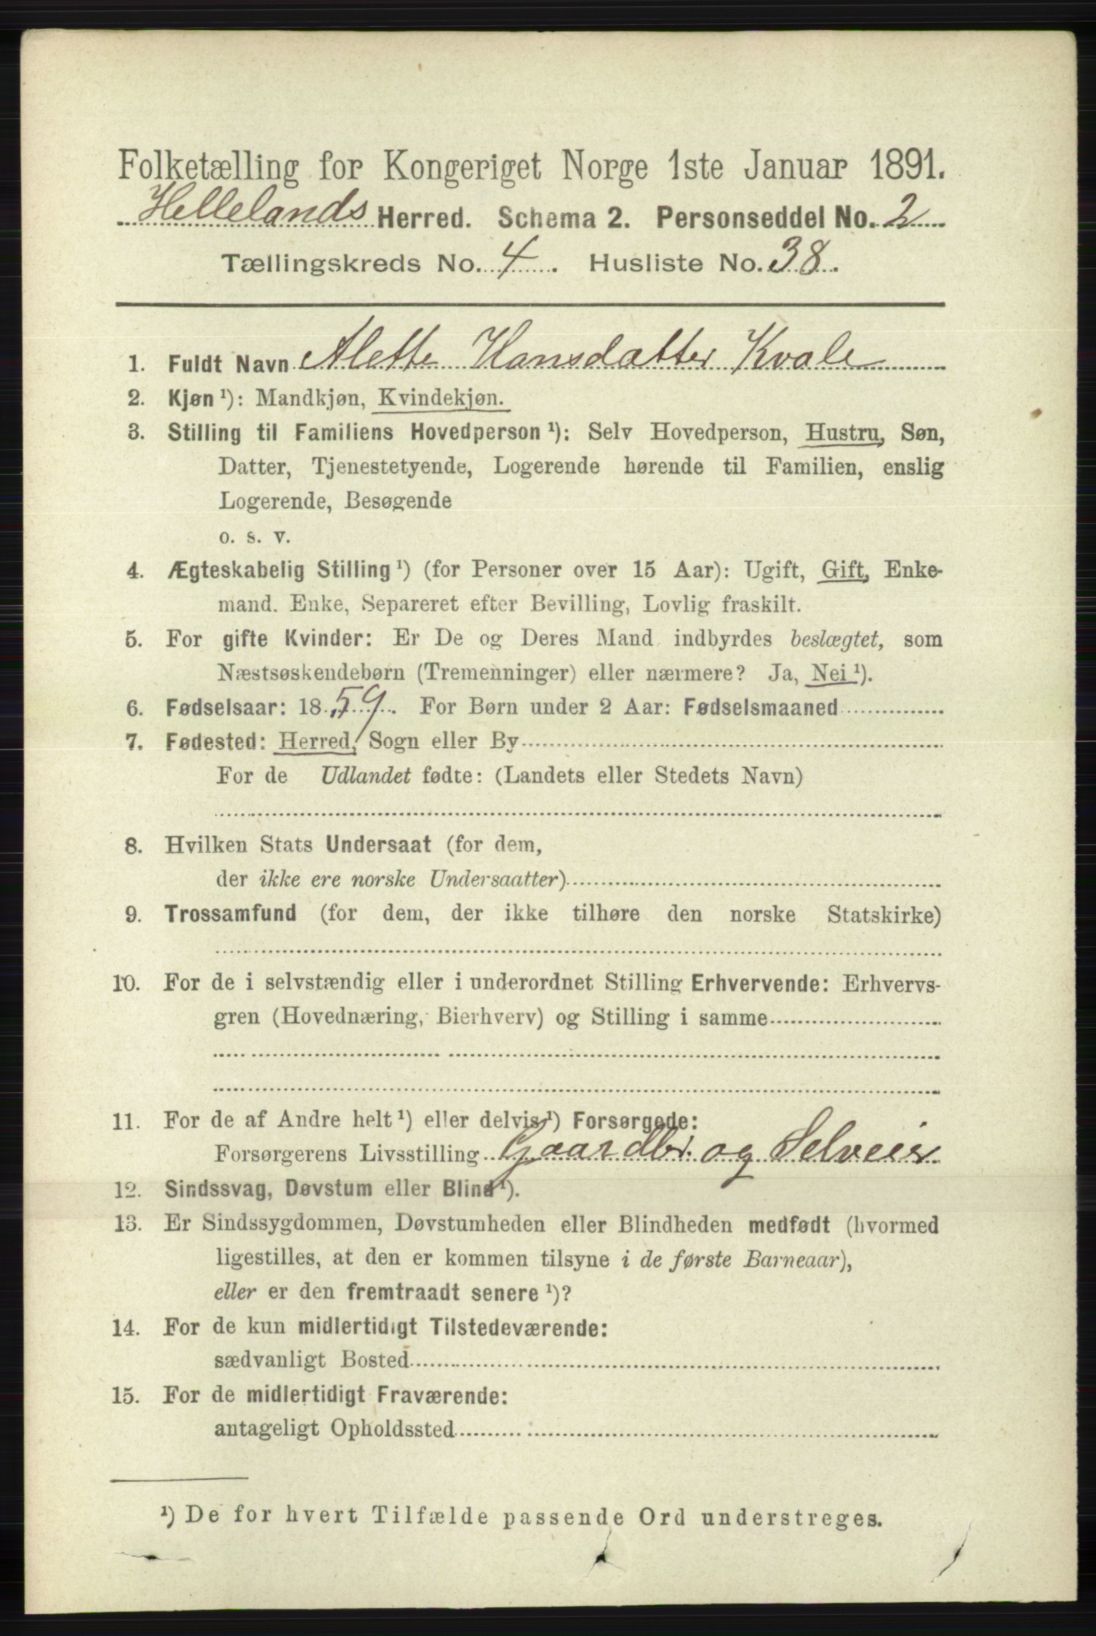 Folketælling for Kongeriget Norge 1ste Januar 1891.
Hellelands Herred. Schema 2. Personseddel No. 2
Tællingskreds No. 4. Husliste No. 38.
1. Fuldt Navn Alette Hansdatter Kvale
2. Kjøn ¹): Mandkjøn, Kvindekjøn.
3. Stilling til Familiens Hovedperson ¹): Selv Hovedperson, Hustru, Søn,
Datter, Tjenestetyende, Logerende hørende til Familien, enslig
Logerende, Besøgende
o. s. v.
4. Ægteskabelig Stilling ¹) (for Personer over 15 Aar): Ugift, Gift, Enke-
mand. Enke, Separeret efter Bevilling, Lovlig fraskilt.
5. For gifte Kvinder: Er De og Deres Mand indbyrdes beslægtet, som
Næstsøskendebørn (Tremenninger) eller nærmere? Ja, Nei ¹).
6. Fødselsaar: 1859. For Børn under 2 Aar: Fødselsmaaned
7. Fødested: Herred, Sogn eller By
For de Udlandet fødte: (Landets eller Stedets Navn)
8. Hvilken Stats Undersaat (for dem,
der ikke ere norske Undersaatter)
9. Trossamfund (for dem, der ikke tilhøre den norske Statskirke)
10. For de i selvstændig eller i underordnet Stilling Erhvervende: Erhvervs-
gren (Hovednæring, Bierhverv) og Stilling i samme
11. For de af Andre helt ¹) eller delvis ¹) Forsørgede:
Forsørgerens Livsstilling Gaardbr. og Selveier
12. Sindssvag, Døvstum eller Blind ¹).
13. Er Sindssygdommen, Døvstumheden eller Blindheden medfødt (hvormed
ligestilles, at den er kommen tilsyne i de første Barneaar),
eller er den fremtraadt senere ¹)?
14. For de kun midlertidigt Tilstedeværende:
sædvanligt Bosted
15. For de midlertidigt Fraværende:
antageligt Opholdssted
¹) De for hvert Tilfælde passende Ord understreges.